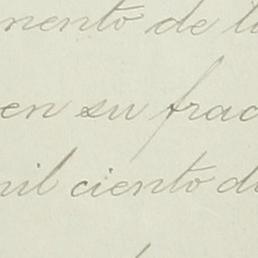 mento de l
en su frac
mil ciento d